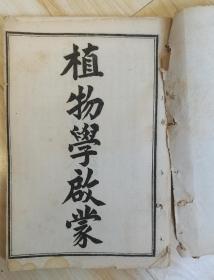 植物學啟蒙